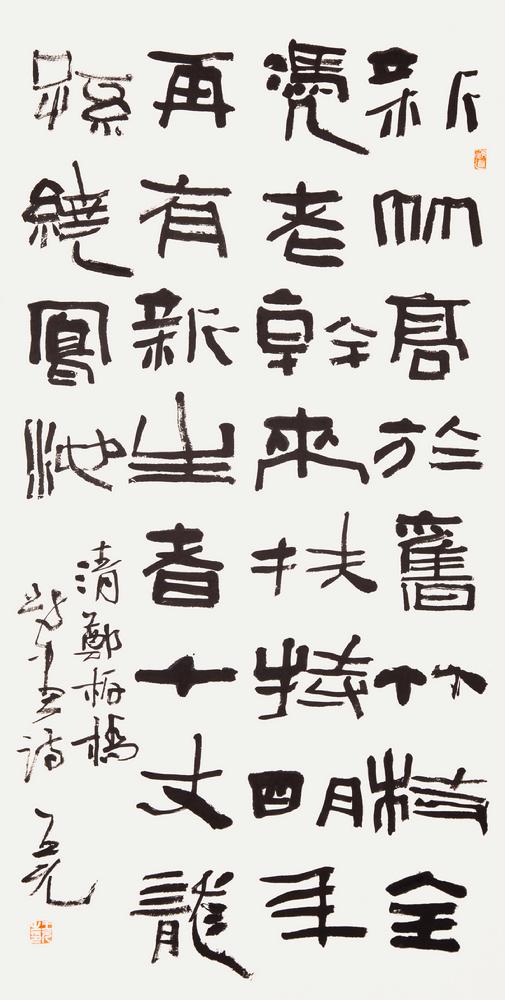 新竹高於舊竹枝全
憑老幹來扶持明年
再有新生者十丈龍
孫繞鳳池
清鄭板橋
畫詩